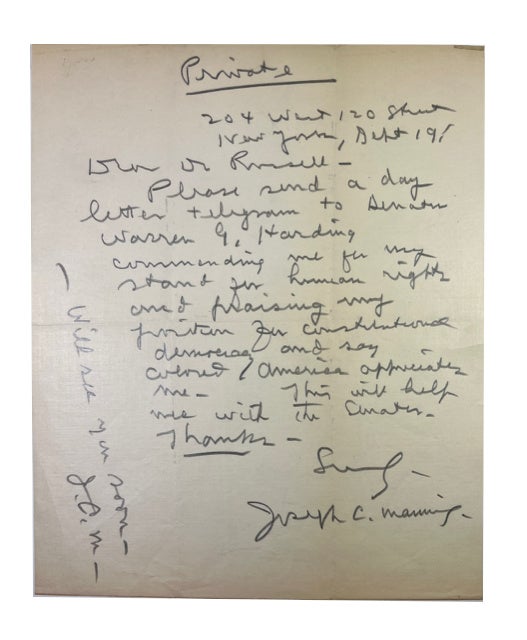 Private
204 West 120 Street
New York, Sept 19/
Dear Dr Russell -
Please send a day
letter telegram to Senator
Warren G. Harding
commending me for my
stand for human rights
and praising my
position for constitutional
democracy and say
colored America appreciates
me - This will help
me with the Senator -
Thanks -
Joseph C. Manning -
- Will see you soon -
J.C.M -